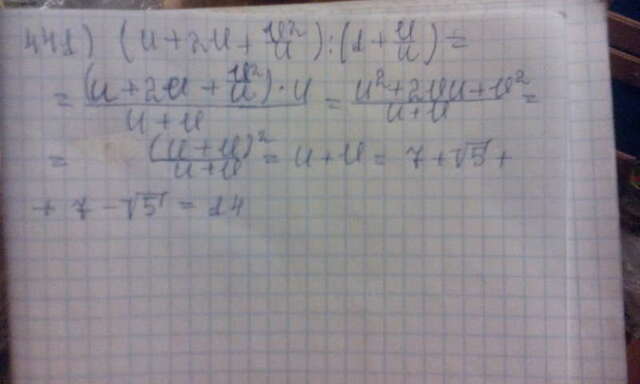 441) (u+2u+u²/u):(1+u/u)=
= (u+2u+u²/u)·u / u+u = u²+2uu+u² / u+u =
= (u+u)² / u+u = u+u = 7+√5+
+ 7-√5 = 14